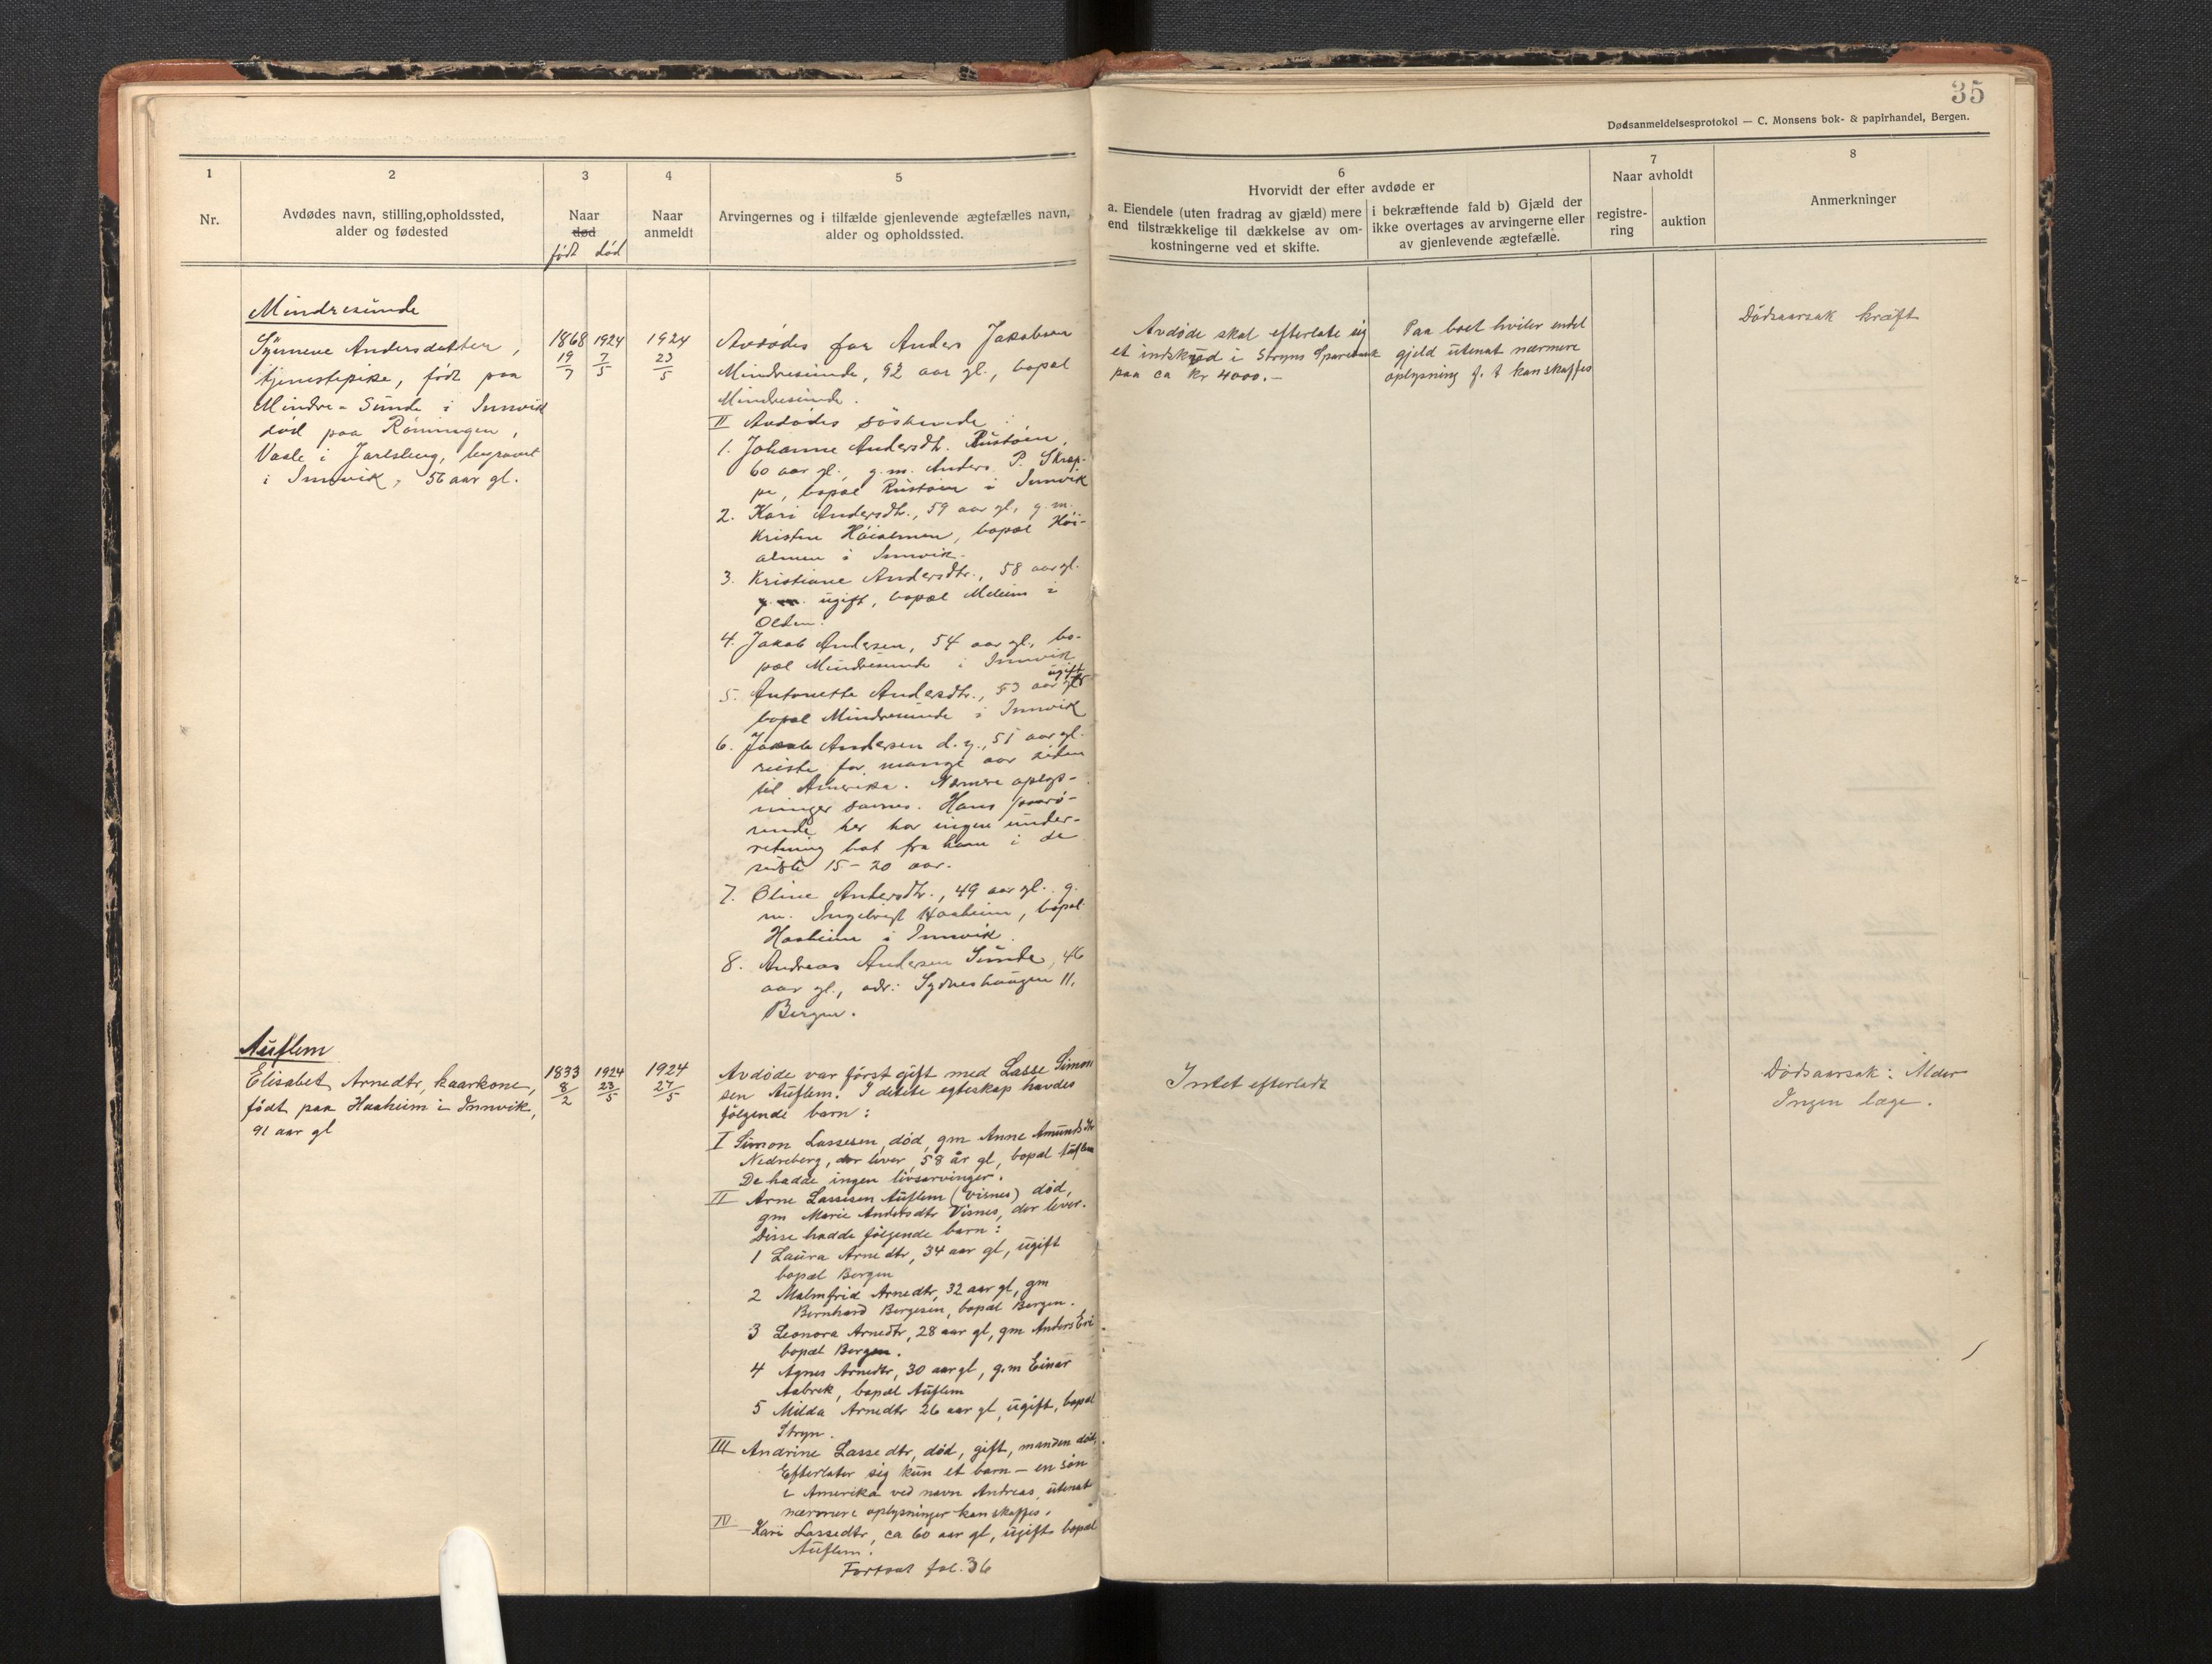 35
Dødsanmeldelsesprotokol — C. Monsens bok- & papirhandel, Bergen.
1
Nr.
2
Avdødes navn, stilling, opholdssted,
alder og fødested
3
Naar
død
født død
4
Naar
anmeldt
5
Arvingernes og i tilfælde gjenlevende ægtefælles navn,
alder og opholdssted.
6
Hvorvidt der efter avdøde er
a. Eiendele (uten fradrag av gjæld) mere
end tilstrækkelige til dækkelse av om-
kostningerne ved et skifte.
i bekræftende fald b) Gjæld der
ikke overtages av arvingerne eller
av gjenlevende ægtefælle.
7
Naar avholdt
registre-
ring
auktion
8
Anmerkninger
Mindresunde
Synneve Andersdatter,
tjenestepike, født paa
Mindre-Sunde i Innvik
død paa Røningen,
Vaale i Jarlsberg, begravet
i Innvik, 56 aar gl.
1868
19/7
1924
7/5
1924
23/5
Avdødes far Anders Jakobsen
Mindresunde, 92 aar gl., bopæl
Mindresunde.
II Avdødes søskende
1. Johanne Andersdtr. Rustøen,
60 aar gl., g.m. Anders P. Skrep-
pe, bopæl Rustøen i Innvik
2. Kari Andersdtr., 59 aar gl, g.m.
Kristen Høialmen, bopæl Høi-
almen i Innvik.
3. Kristiane Andersdtr., 58 aar gl.
g.m. ugift, bopæl Melum i
Olden.
4. Jakob Andersen, 54 aar gl., bo-
pæl Mindresunde i Innvik
5. Antonette Andersdtr., 53 aar gl. ugift
bopæl Mindresunde i Innvik
6. Jakob Andersen d.y., 51 aar gl.
reiste for mange aar siden
til Amerika. Nærmere oplys-
ninger savnes. Hans paarø-
rende her har ingen under-
retning hat fra ham i de
siste 15-20 aar.
7. Oline Andersdtr., 49 aar gl. g.
m. Ingebrigt Haaheim, bopæl
Haaheim i Innvik.
8. Andreas Andersen Sunde, 46
aar gl., adr: Sydneshaugen 11,
Bergen.
Avdøde skal efterlate sig
et indskud i Stryns Sparebank
paa ca kr 4000.-
Paa boet hviler endel
gjeld utenat nærmere
oplysning f.t. kan skaffes
Dødsaarsak kræft
Auflem
Elisabet Arnedtr, kaarkone,
født paa Haaheim i Innvik,
91 aar gl
1833
8/2
1924
23/5
1924
27/5
Avdøde var først gift med Lasse Simon
sen Auflem. I dette egteskap havdes
følgende barn:
I Simon Lassesen, død, gm Anne Amundsdtr
Nedreberg, der lever, 58 år gl, bopæl Auflem
De hadde ingen livsarvinger.
II Arne Lassesen Auflem (Visnes) død,
gm Marie Andersdtr Visnes, der lever.
Disse hadde følgende barn:
1 Laura Arnedtr, 34 aar gl, ugift
bopæl Bergen
2 Malmfrid Arnedtr, 32 aar gl, gm
Bernhard Bergesen, bopæl Bergen.
3 Leonora Arnedtr, 28 aar gl, gm Anders Eri
bopæl Bergen.
4 Agnes Arnedtr, 30 aar gl, g.m Einar
Aabrek, bopæl Auflem
5 Milda Arnedtr 26 aar gl, ugift, bopæl
Stryn.
III Andrine Lassedtr, død, gift, manden død,
Efterlater sig kun et barn — en søn
i Amerika ved navn Andreas, utenat
nærmere oplysninger kan skaffes.
IV Kari Lassedtr, ca 60 aar gl, ugift bopæl
Auflem.
Fortsat fol. 36
Intet efterladt
Dødsaarsak: Alder
Ingen læge.